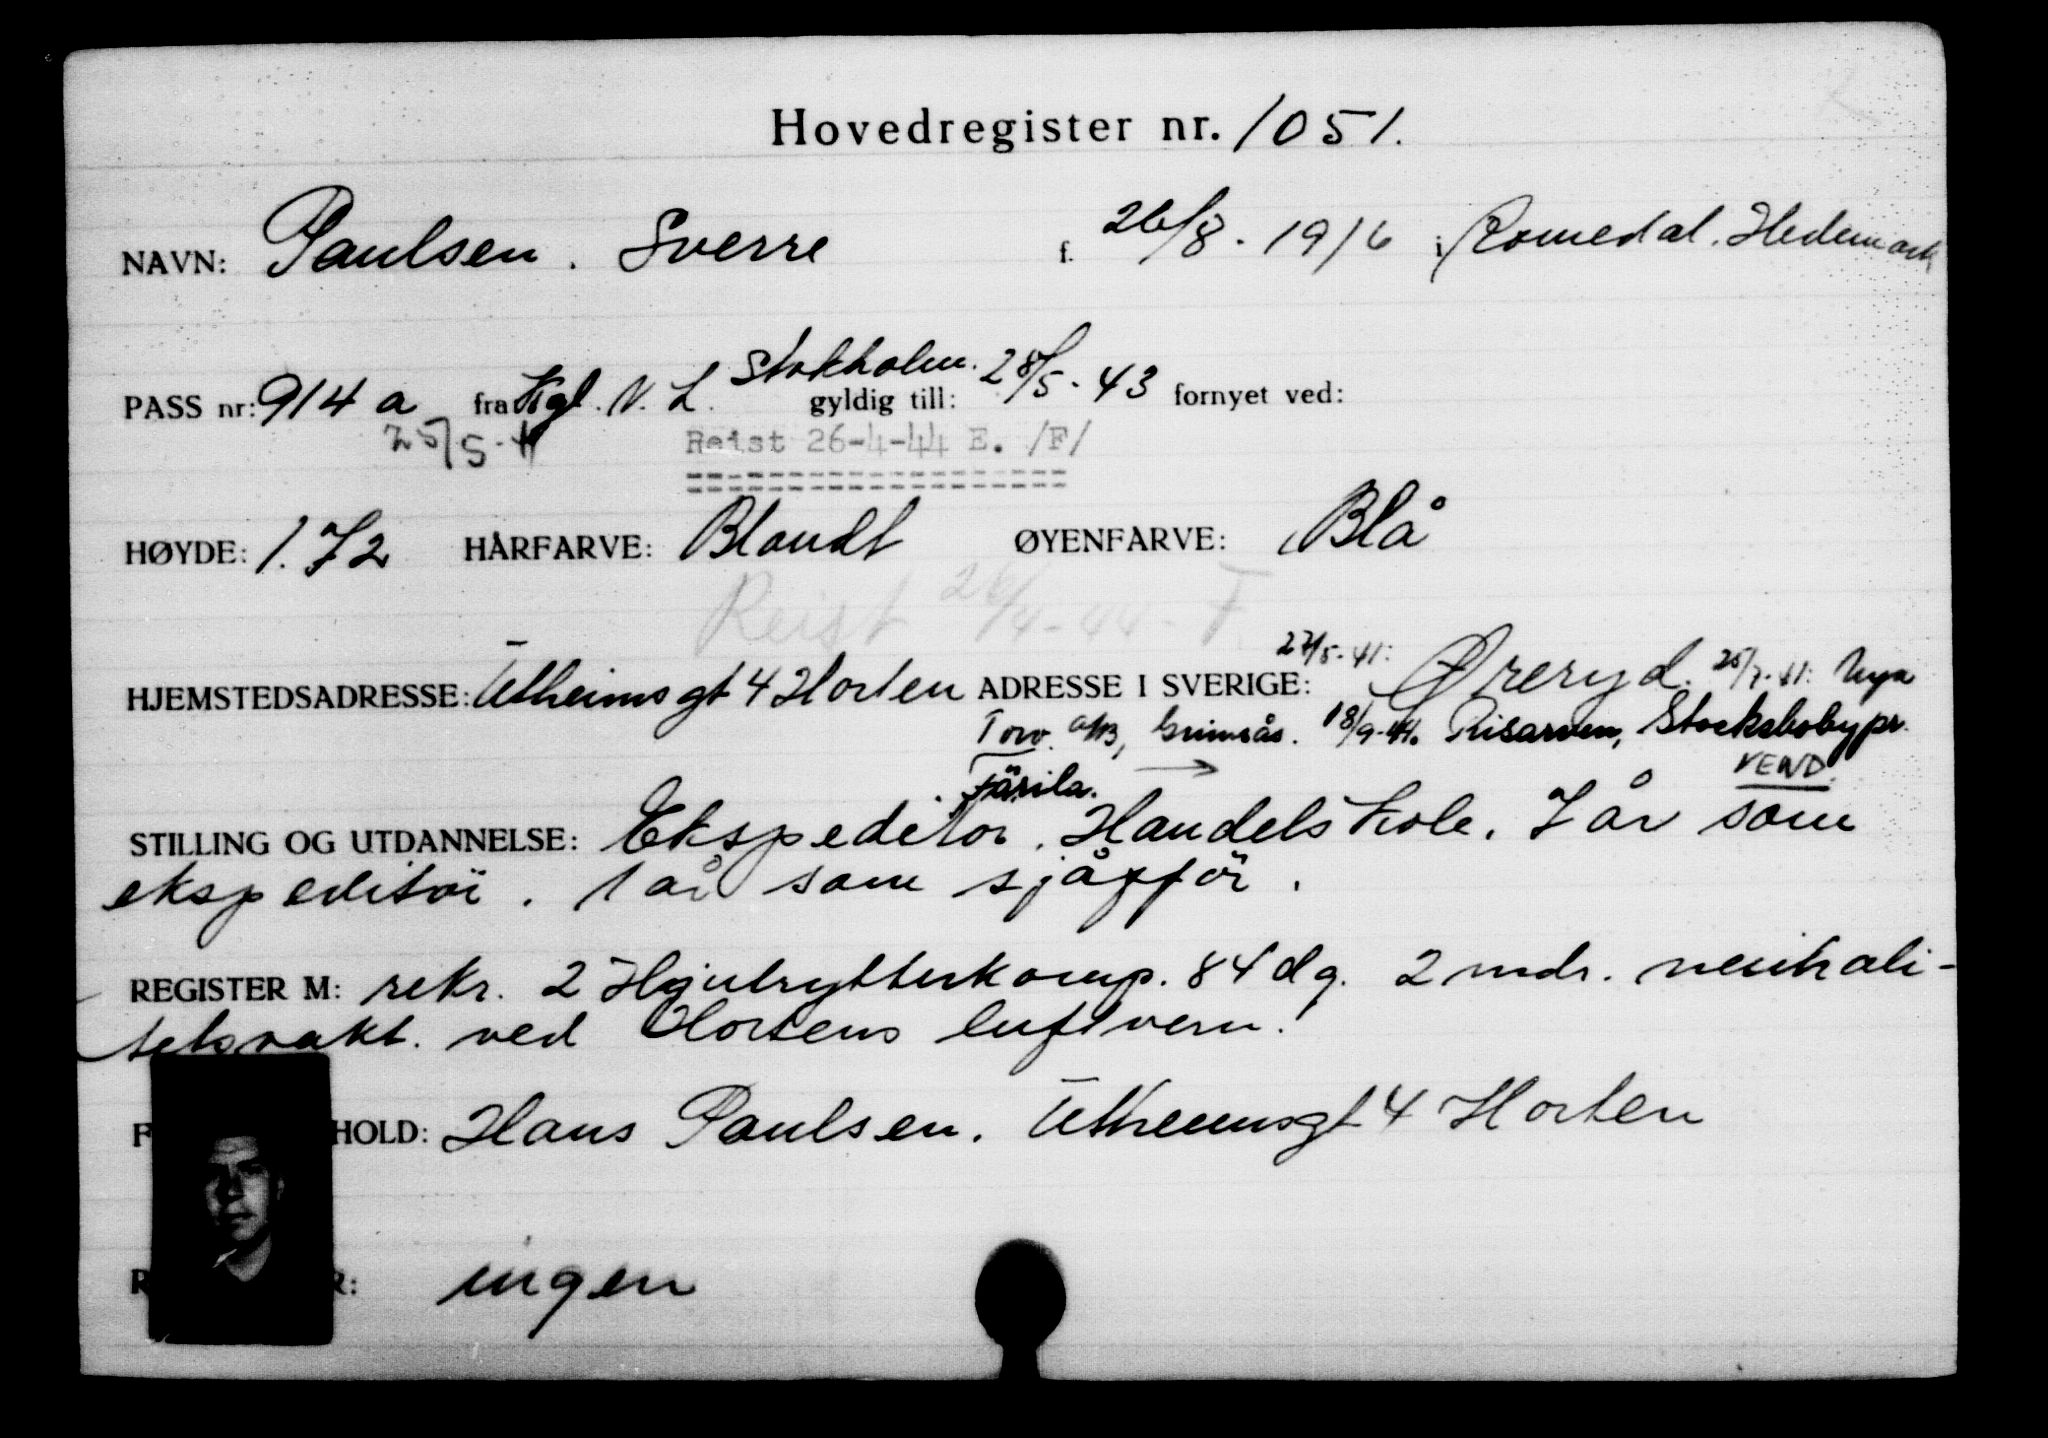 Hovedregister nr. 1051.
NAVN: Paulsen. Sverre f. 26/8. 1916 i Romedal. Hedemark
PASS nr: 914 a fra Kgl. N. L. Stokholm. gyldig till: 28/5-43 fornyet ved:
25/5-41
Reist 26-4-44 E. /F/
HØYDE: 1.72 HÅRFARVE: Blondt ØYENFARVE: Blå
Reist 26/4-44 - F.
HJEMSTEDSADRESSE: gt 4 Horten ADRESSE I SVERIGE: 27/5-41: Øreryd. 25/7-41: Nya
Torv. A/B, Grimsås. 18/9-41. Risarven, Stocksbobypr.
Färila. → VEND.
STILLING OG UTDANNELSE: Ekspeditor. Handelskole. 7 år som
ekspeditör. 1 år som sjåfför.
REGISTER M: rekr. 2 Hjulrytterkomp. 84 dg. 2 mdr. neutrali-
tetsvakt. ved Hortens luftvern.
F HOLD: Hans Paulsen. gt 4 Horten
R R: ingen